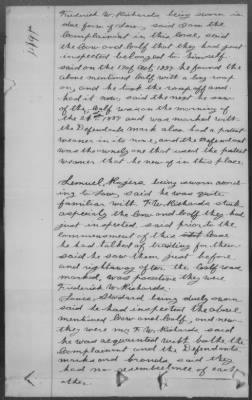 Frederick W. Richards being sworn in
due form of law. said I am the
Complainant in this case, said
the Cow and Calf that they had just
inspected belonged to himself
said on the 1 Oct 1887 he found the
above mentioned Calf with a big rope
on, and he took the rope off and
had it now, said the next he saw
of the Calf was on the morning of
the 24th 1887 and was marked with
the Defendants mark also had a patent
weaner in its nose, and the defendant
was the only one that used the patent
weaner that he new of in this place.
Lemuel Rogers being sworn accord-
ing to Law, said he was quite
familiar with F. W. Richards stock
aspecialy the Cow and Calf they had
just inspected, said prior to the
commencement of this
he had talked of trading for them
said he saw them just before,
and right away after the Calf was
marked, was positive they were
Frederick W. Richards.
being duly sworn
said he had inspected the above
mentioned Cow and Calf, and new
they were F. W. Richards, said
he was acquainted with bothe the
Complainant and the Defendants
marks and brands, said they
had no resemblence of each
other.